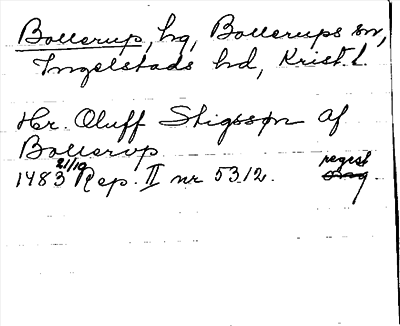 Bollerup, hg, Bollerups sn,
Ingelstads hd, Krist. l.
Hr. Oluff Stigssøn af
Bollerup
1483 21/10 Rep. II nr 5312. regest